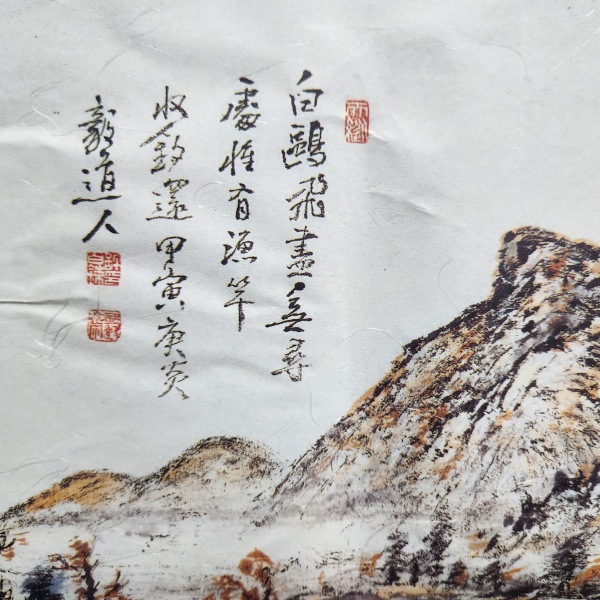 白鷗飛盡無尋
處惟有漁竿
收釣還甲寅庚炎
毅道人